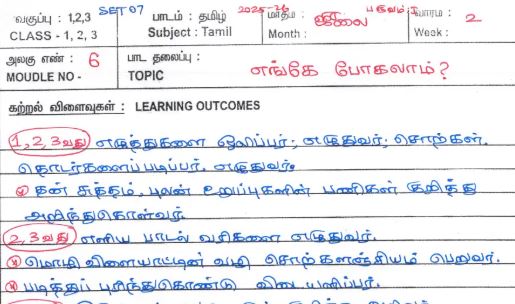 வகுப்பு : 1,2,3 SET 07 பாடம் : தமிழ் 2025-26 மாதம் ஜூலை பருவம் I வாரம் : 2
CLASS - 1, 2, 3 Subject : Tamil Month : Week :
அலகு எண் : 6 பாட தலைப்பு :
MOUDLE NO - TOPIC எங்கே போகலாம்?
கற்றல் விளைவுகள் : LEARNING OUTCOMES
1,2,3வது எழுத்துகளை ஒலிப்பர்; எழுதுவர்; சொற்கள்,
தொடர்களைப்படிப்பர். எழுதுவர்.
தன் சுத்தம், புலன் உறுப்புகளின் பணிகள் குறித்து
அறிந்துகொள்வர்.
2,3வது எளிய பாடல் வரிகளை எழுதுவர்.
மொழி விளையாட்டின் வழி சொற்களஞ்சியம் பெறுவர்.
படித்துப் புரிந்துகொண்டு விடையளிப்பர்.